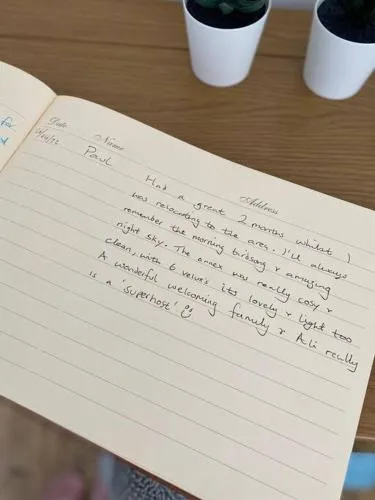 for
Date Name Address
Paul
Had a great 2 months whilst I
was relocating to the area. I'll always
remember the morning birdsong & amazing
night sky. The annex was really cosy &
clean, with 6 velux's its lovely & light too
A wonderful welcoming family & Ali really
is a 'superhost' ☺